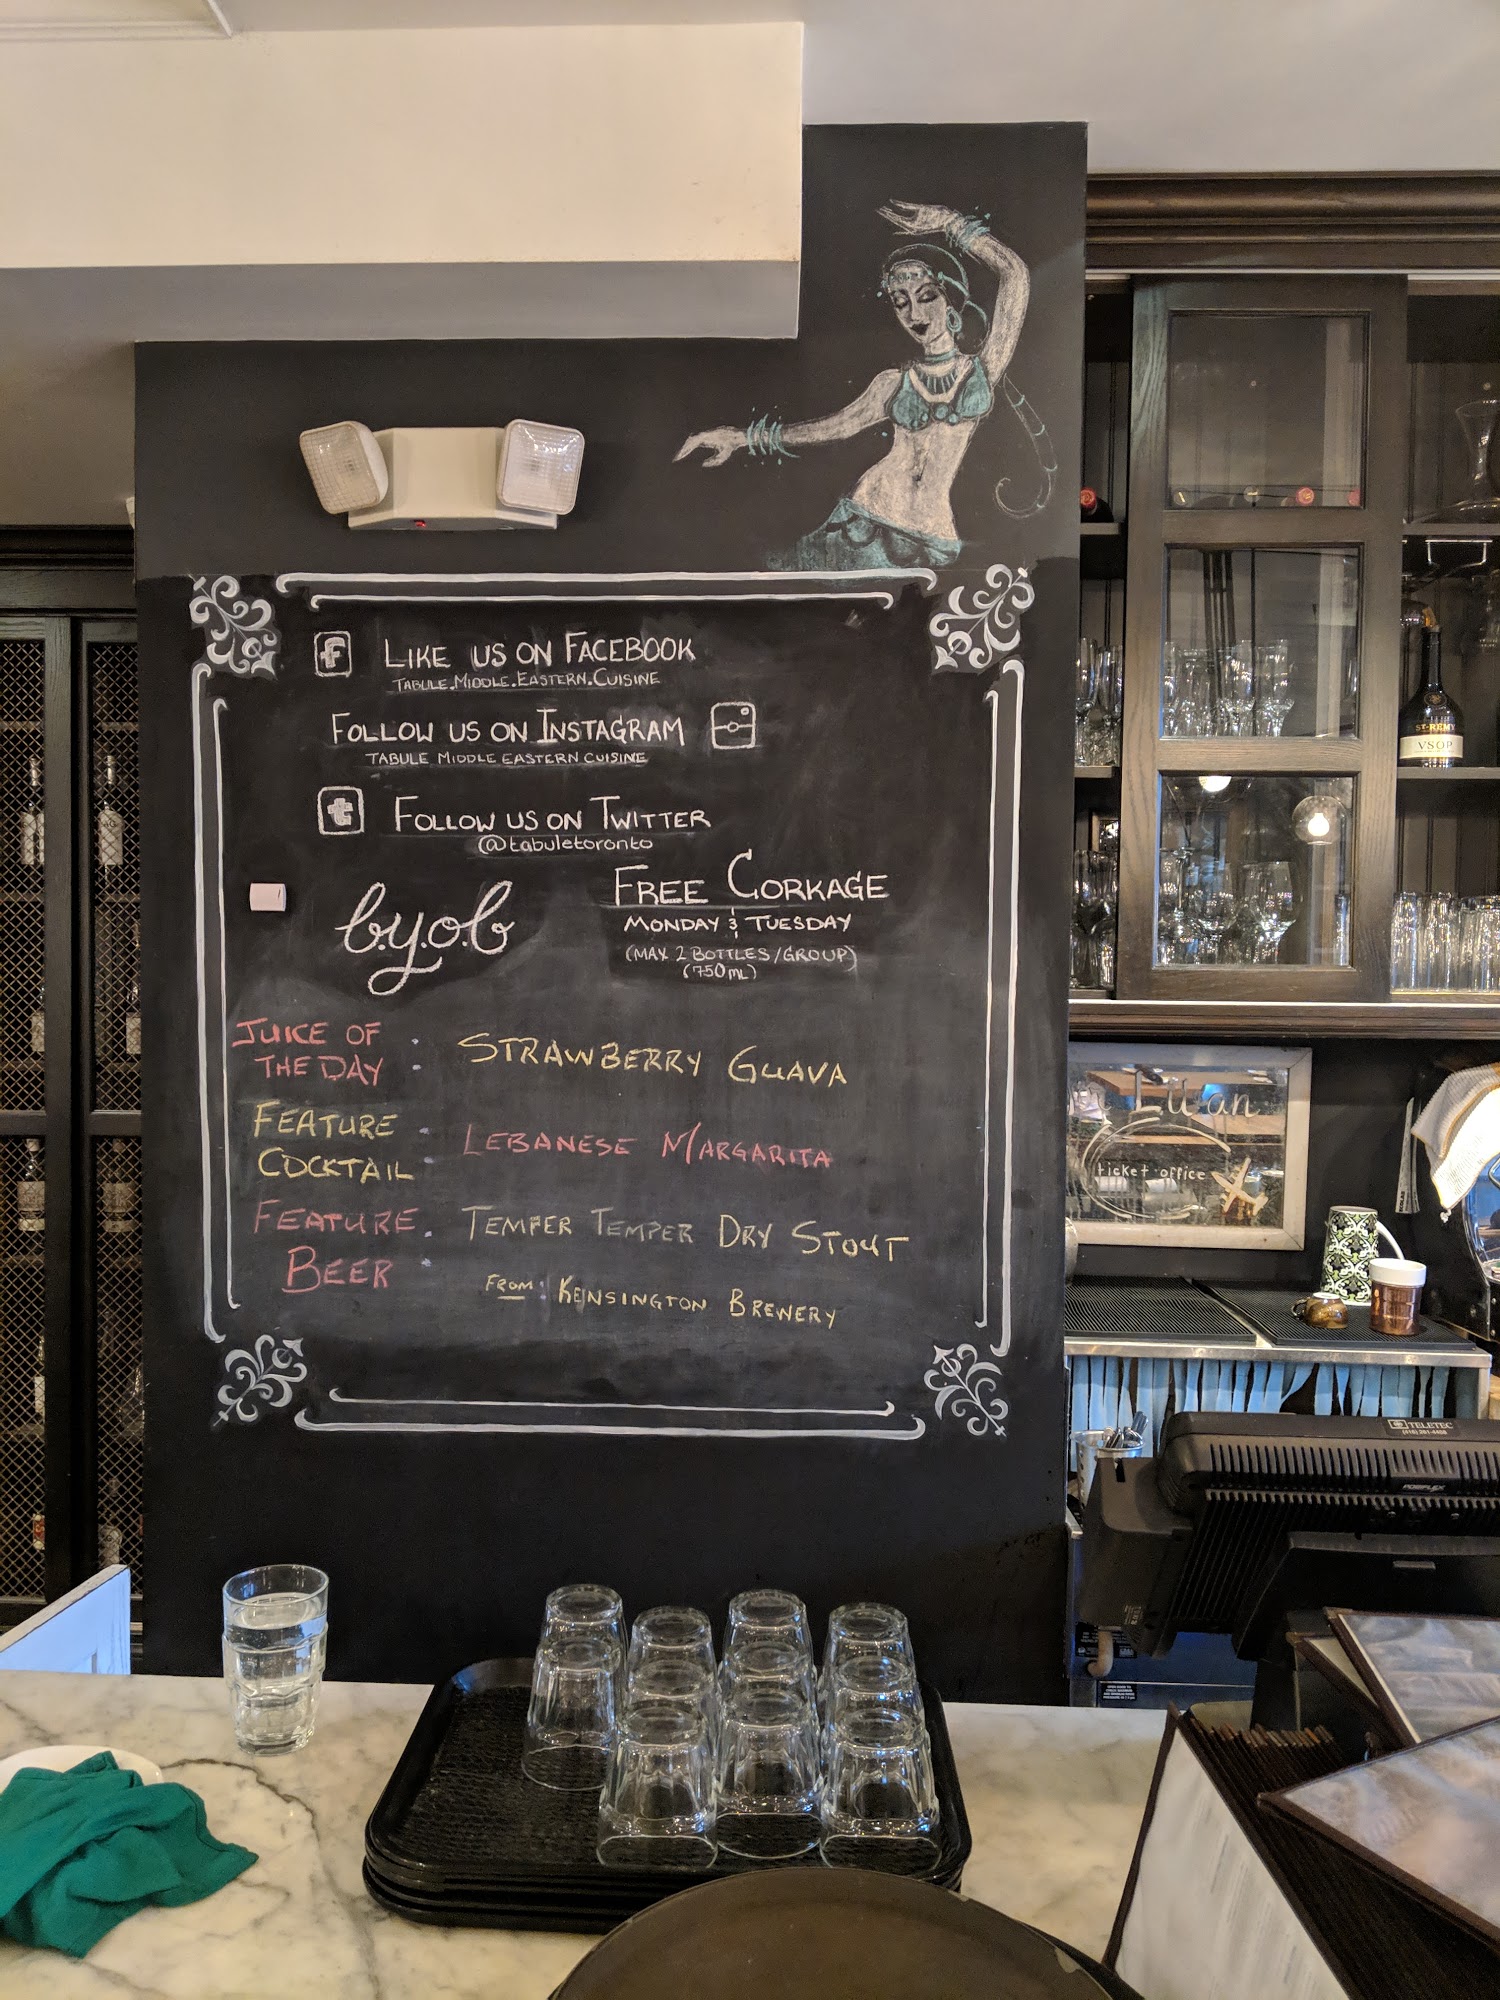 LIKE US ON FACEBOOK
TABULE.MIDDLE.EASTERN.CUISINE
FOLLOW US ON INSTAGRAM
TABULE MIDDLE EASTERN CUISINE
t FOLLOW US ON TWITTER
@tabuletoronto
b.y.o.b
FREE CORKAGE
MONDAY & TUESDAY
(MAX 2 BOTTLES/GROUP)
(750ML)
JUICE OF THE DAY : STRAWBERRY GUAVA
FEATURE COCKTAIL : LEBANESE MARGARITA
FEATURE BEER : TEMPER TEMPER DRY STOUT
FROM: KENSINGTON BREWERY
ST-RÉMY
VSOP
Luan
ticket office
TELETEC
(416) 281-4488
POSIFLEX